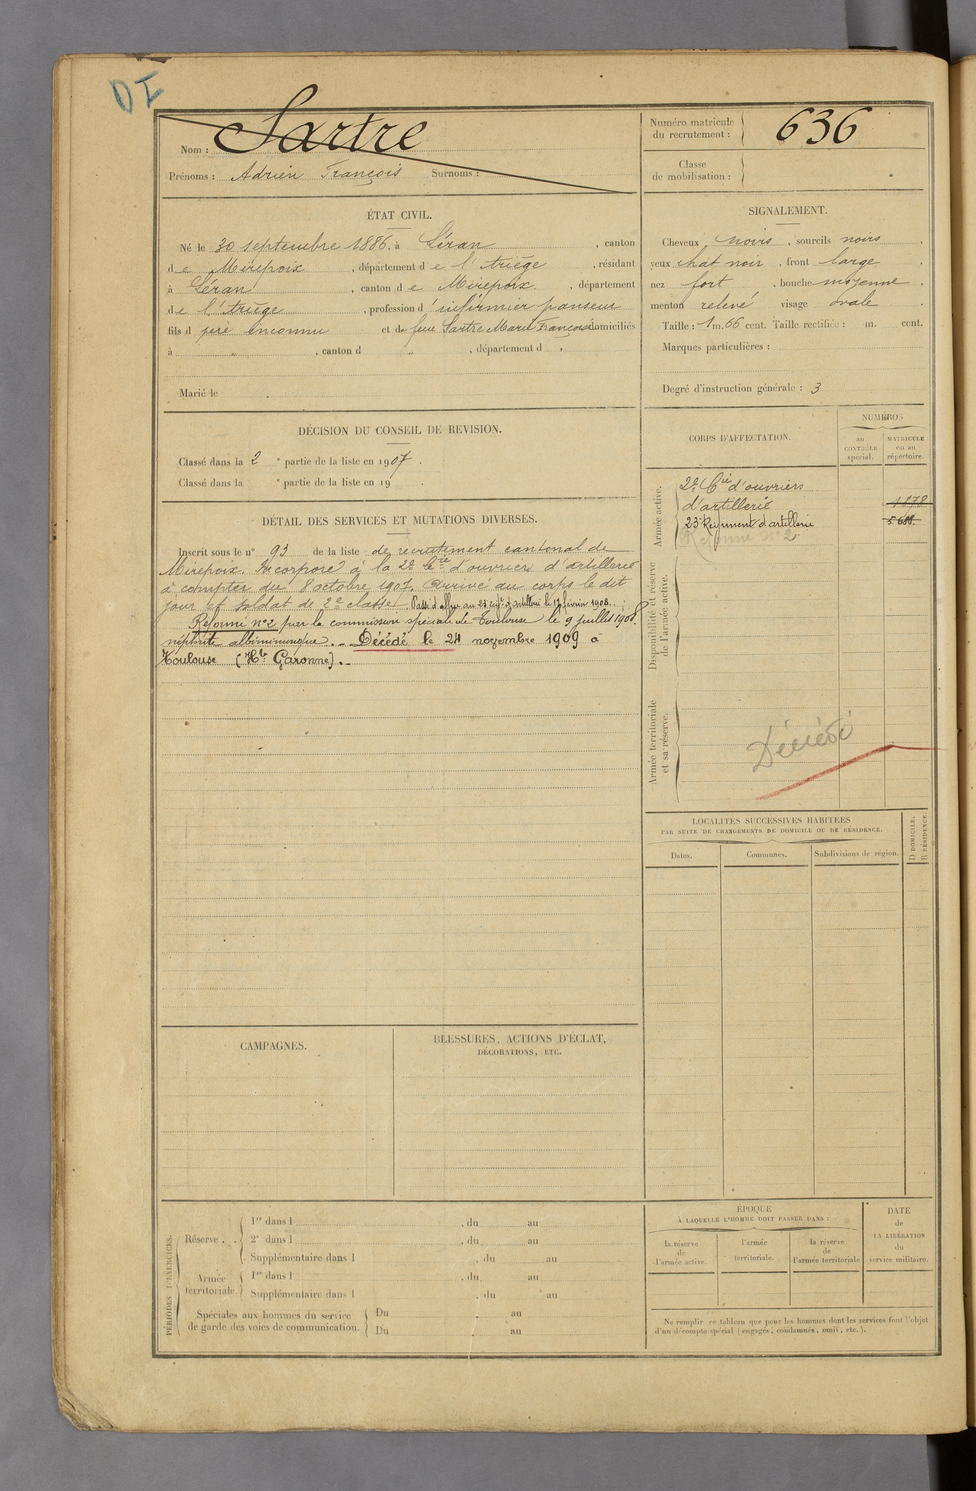 DI
Nom : Sartre
Prénoms : Adrien François Surnoms :
Numéro matricule du recrutement : 636
Classe de mobilisation :
ÉTAT CIVIL.
Né le 30 septembre 1886, à Léran , canton
de Mirepoix , département de l'Ariège , résidant
à Léran , canton de Mirepoix , département
de l'Ariège , profession d'infirmier panseur
fils d père inconnu et de feue Sartre Marie Françoise domiciliés
à „ , canton d „ , département d .
Marié le .
SIGNALEMENT.
Cheveux noirs , sourcils noirs .
yeux chat noir , front large
nez fort , bouche moyenne .
menton relevé visage ovale .
Taille : 1 m. 66 cent. Taille rectifiée : m. cent.
Marques particulières :
Degré d'instruction générale : 3
DÉCISION DU CONSEIL DE REVISION.
Classé dans la 2 e partie de la liste en 1907 .
Classé dans la e partie de la liste en 19 .
DÉTAIL DES SERVICES ET MUTATIONS DIVERSES.
Inscrit sous le n° 93 de la liste de recrutement cantonal de
Mirepoix. Incorporé à la 2e Cie d'ouvriers d'artillerie
à compter du 8 octobre 1907. Arrivé au corps le dit
jour et soldat de 2e classe. Passé d'office au 23 régt d'artillerie le 17 février 1908.
Réformé n°2 par la commission spéciale de Toulouse le 9 juillet 1908.
néphrite albuminurique. _ Décédé le 24 novembre 1909 à
Toulouse (Hte Garonne). _
CORPS D'AFFECTATION.
NUMÉROS
au CONTRÔLE spécial.
MATRICULE ou au répertoire.
Armée active.
2e Cie d'ouvriers
d'artillerie 1878
23e Régiment d'artillerie 5688
Réforme n° 2
Disponibilité et réserve de l'armée active.
Armée territoriale et sa réserve.
Décédé
LOCALITÉS SUCCESSIVES HABITÉES
PAR SUITE DE CHANGEMENTS DE DOMICILE OU DE RÉSIDENCE.
Dates.
Communes.
Subdivisions de région.
D DOMICILE.
R RÉSIDENCE.
CAMPAGNES.
BLESSURES, ACTIONS D'ÉCLAT,
DÉCORATIONS, ETC.
PÉRIODES D'EXERCICES.
Réserve . .
1re dans l , du au
2e dans l , du au
Supplémentaire dans l , du au
Armée territoriale.
1re dans l , du au
Supplémentaire dans l , du au
Spéciales aux hommes du service
de garde des voies de communication.
Du au
Du au
ÉPOQUE
À LAQUELLE L'HOMME DOIT PASSER DANS :
la réserve de l'armée active.
l'armée territoriale.
la réserve de l'armée territoriale
DATE de LA LIBÉRATION du service militaire.
Ne remplir ce tableau que pour les hommes dont les services font l'objet
d'un décompte spécial (engagés, condamnés, omis, etc.).